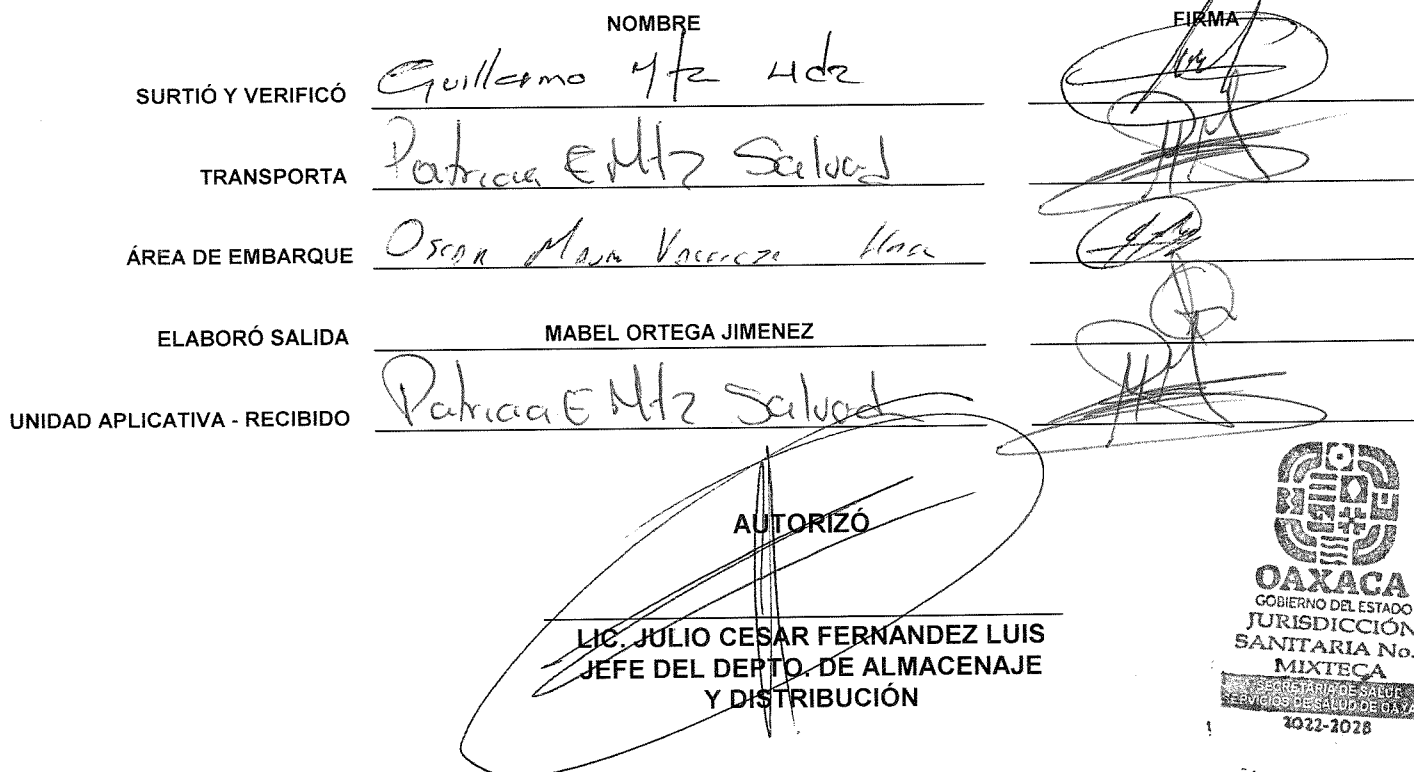 NOMBRE FIRMA
SURTIÓ Y VERIFICÓ Guillermo Mtz Hdz
TRANSPORTA Patricia E Mtz Salvad
ÁREA DE EMBARQUE Oscar
ELABORÓ SALIDA MABEL ORTEGA JIMENEZ
UNIDAD APLICATIVA - RECIBIDO Patricia E Mtz Salvad
AUTORIZÓ
LIC. JULIO CESAR FERNANDEZ LUIS
JEFE DEL DEPTO. DE ALMACENAJE
Y DISTRIBUCIÓN
OAXACA
GOBIERNO DEL ESTADO
JURISDICCIÓN
SANITARIA No.
MIXTECA
SECRETARIA DE SALUD
SERVICIOS DE SALUD DE OAXA
2022-2028